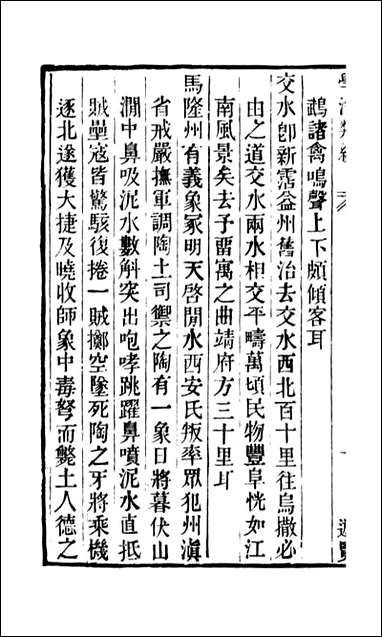 鵡諸禽鳴聲上下頗傾客耳
交水卽新霑益州舊治去交水西北百十里往烏撒必
由之道交水兩水相交平疇萬頃民物豐阜恍如江
南風景矣去予畱寓之曲靖府方三十里耳
馬隆州有義象冢明天啓閒水西安氏叛率眾犯州滇
省戒嚴撫軍調陶土司禦之陶有一象日將暮伏山
澗中鼻吸泥水數斛突出咆哮跳躍鼻噴泥水直抵
賊壘寇皆驚駭後捲一賊擲空墜死陶之牙將乘機
逐北遂獲大捷及曉收師象中毒弩而斃土人德之